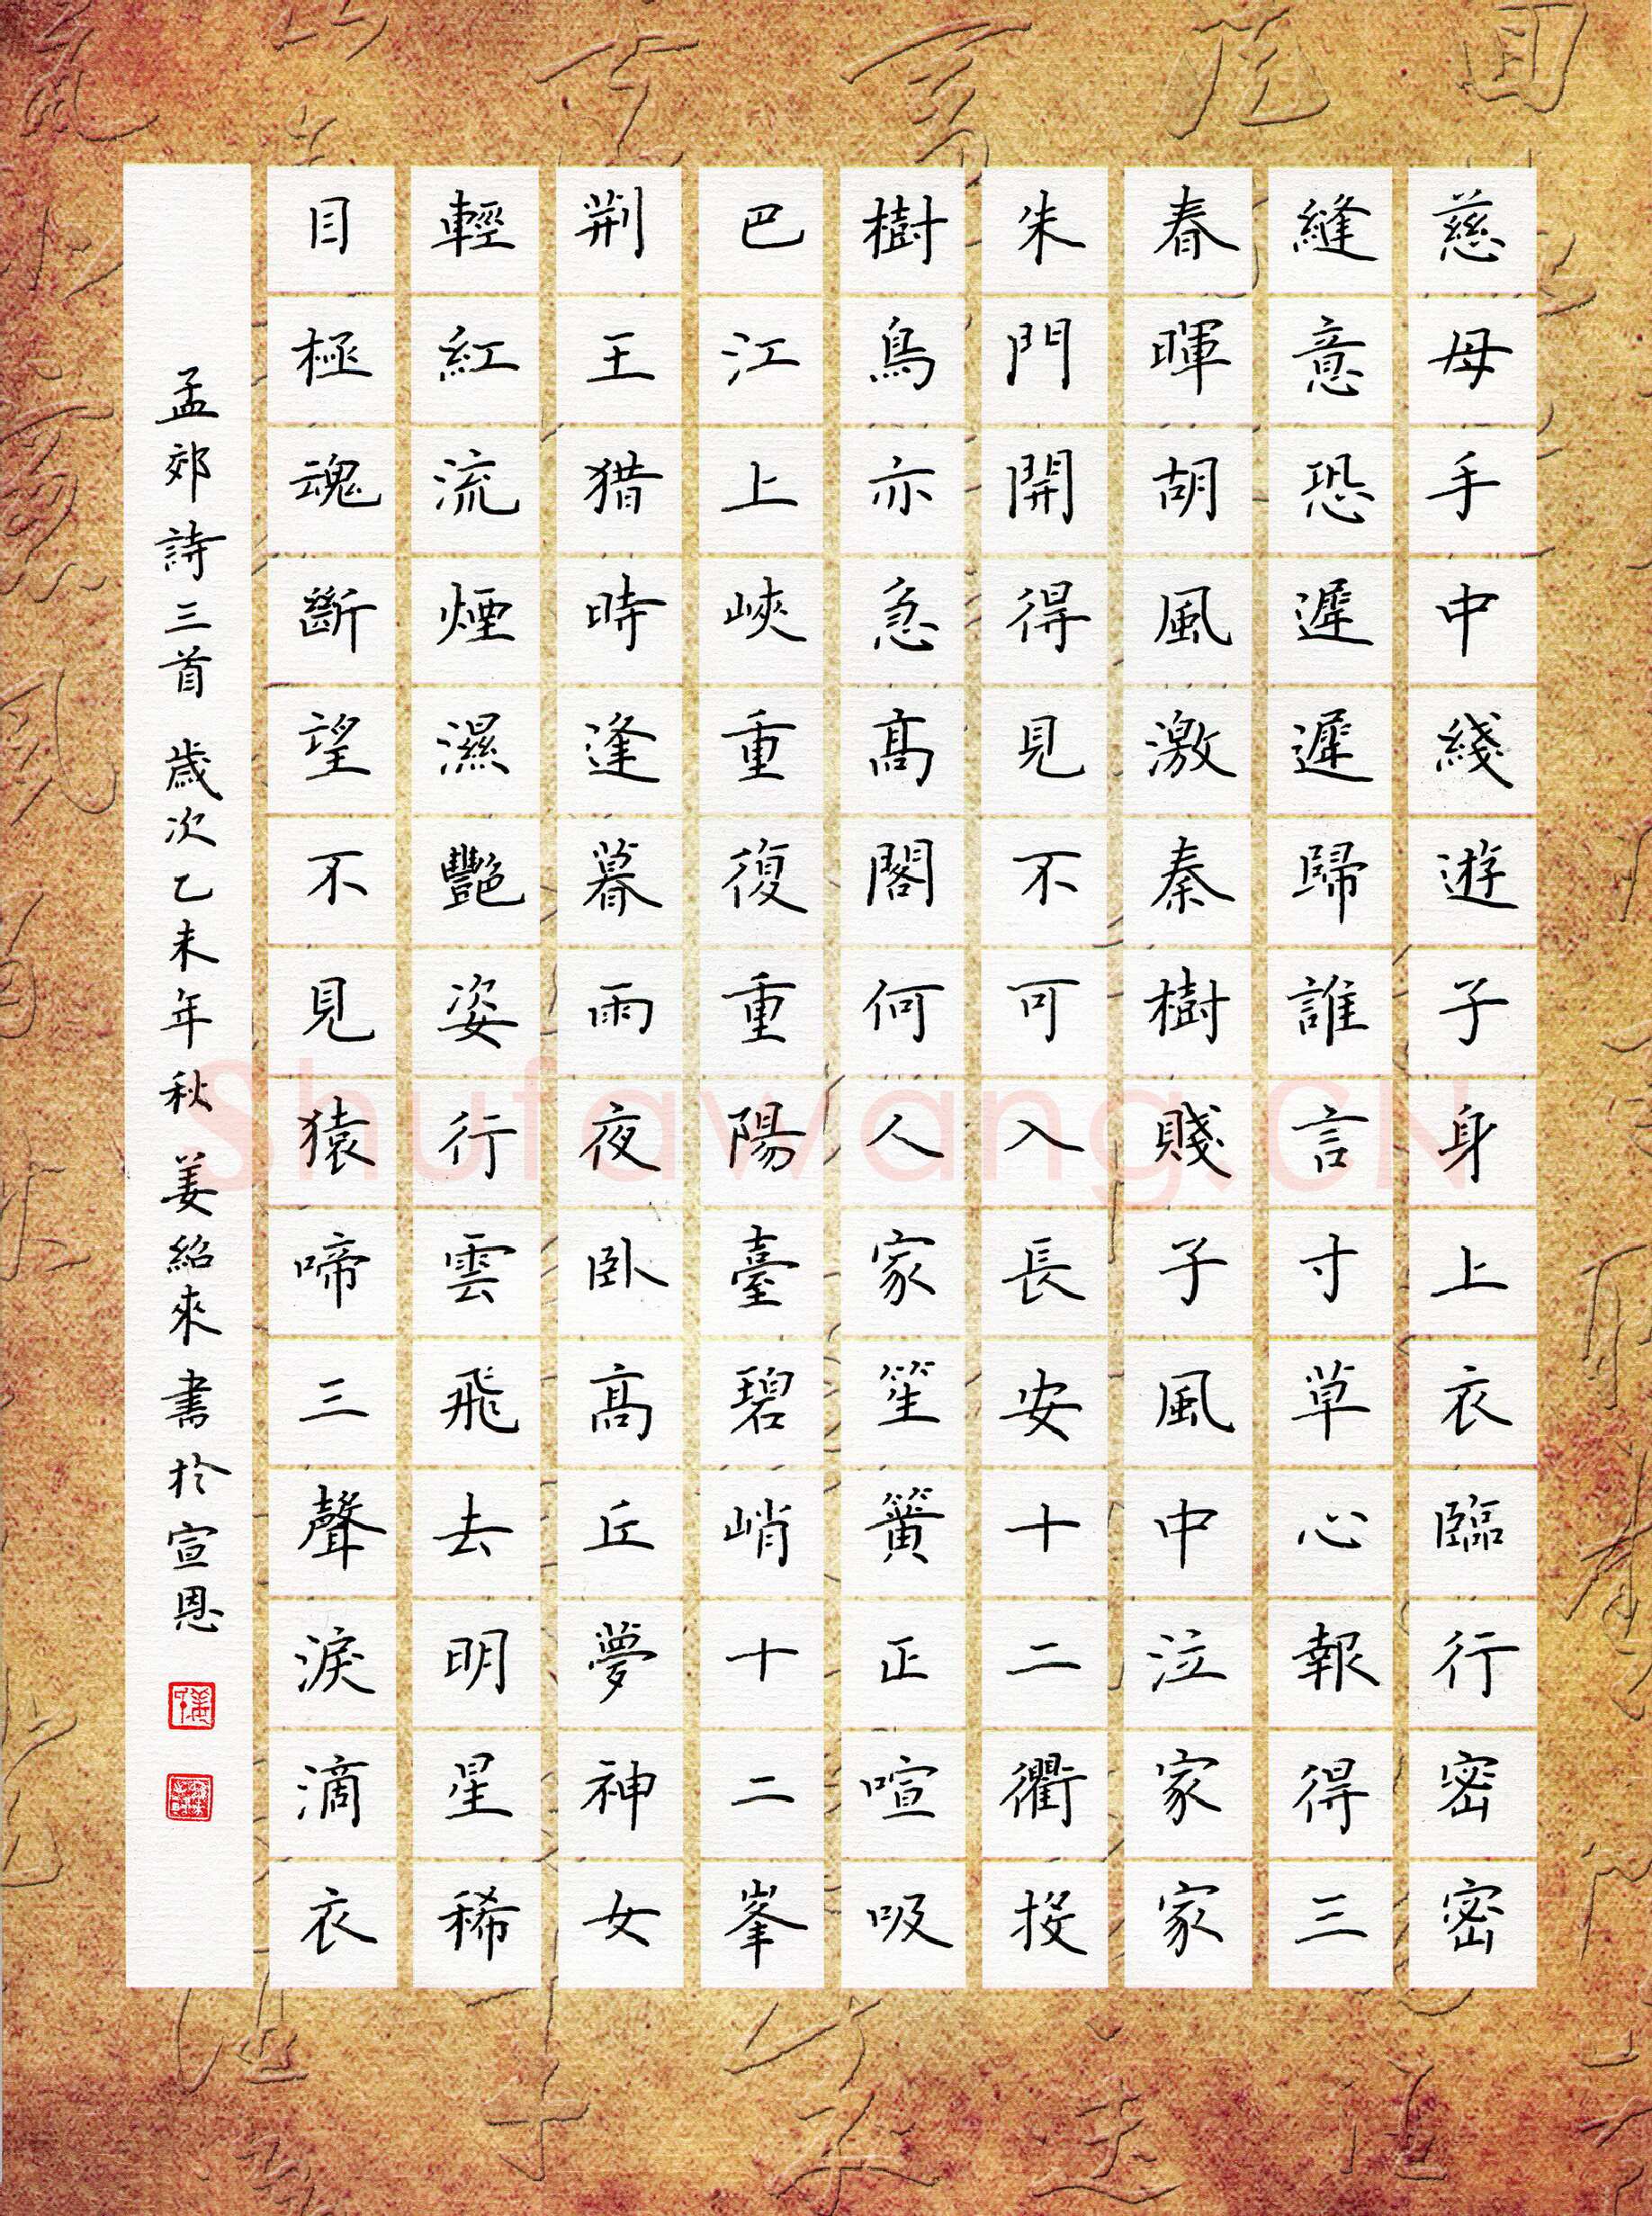 慈母手中綫遊子身上衣臨行密密
縫意恐遲遲歸誰言寸草心報得三
春暉胡風激秦樹賤子風中泣家家
朱門開得見不可入長安十二衢投
樹鳥亦急高閣何人家笙簧正喧吸
巴江上峽重復重陽臺碧峭十二峯
荆王猎時逢暮雨夜卧高丘夢神女
輕紅流煙濕艷姿行雲飛去明星稀
目極魂斷望不見猿啼三聲淚滴衣
孟郊詩三首 歲次乙未年秋 姜紹來書於宣恩
Shufawang.CN